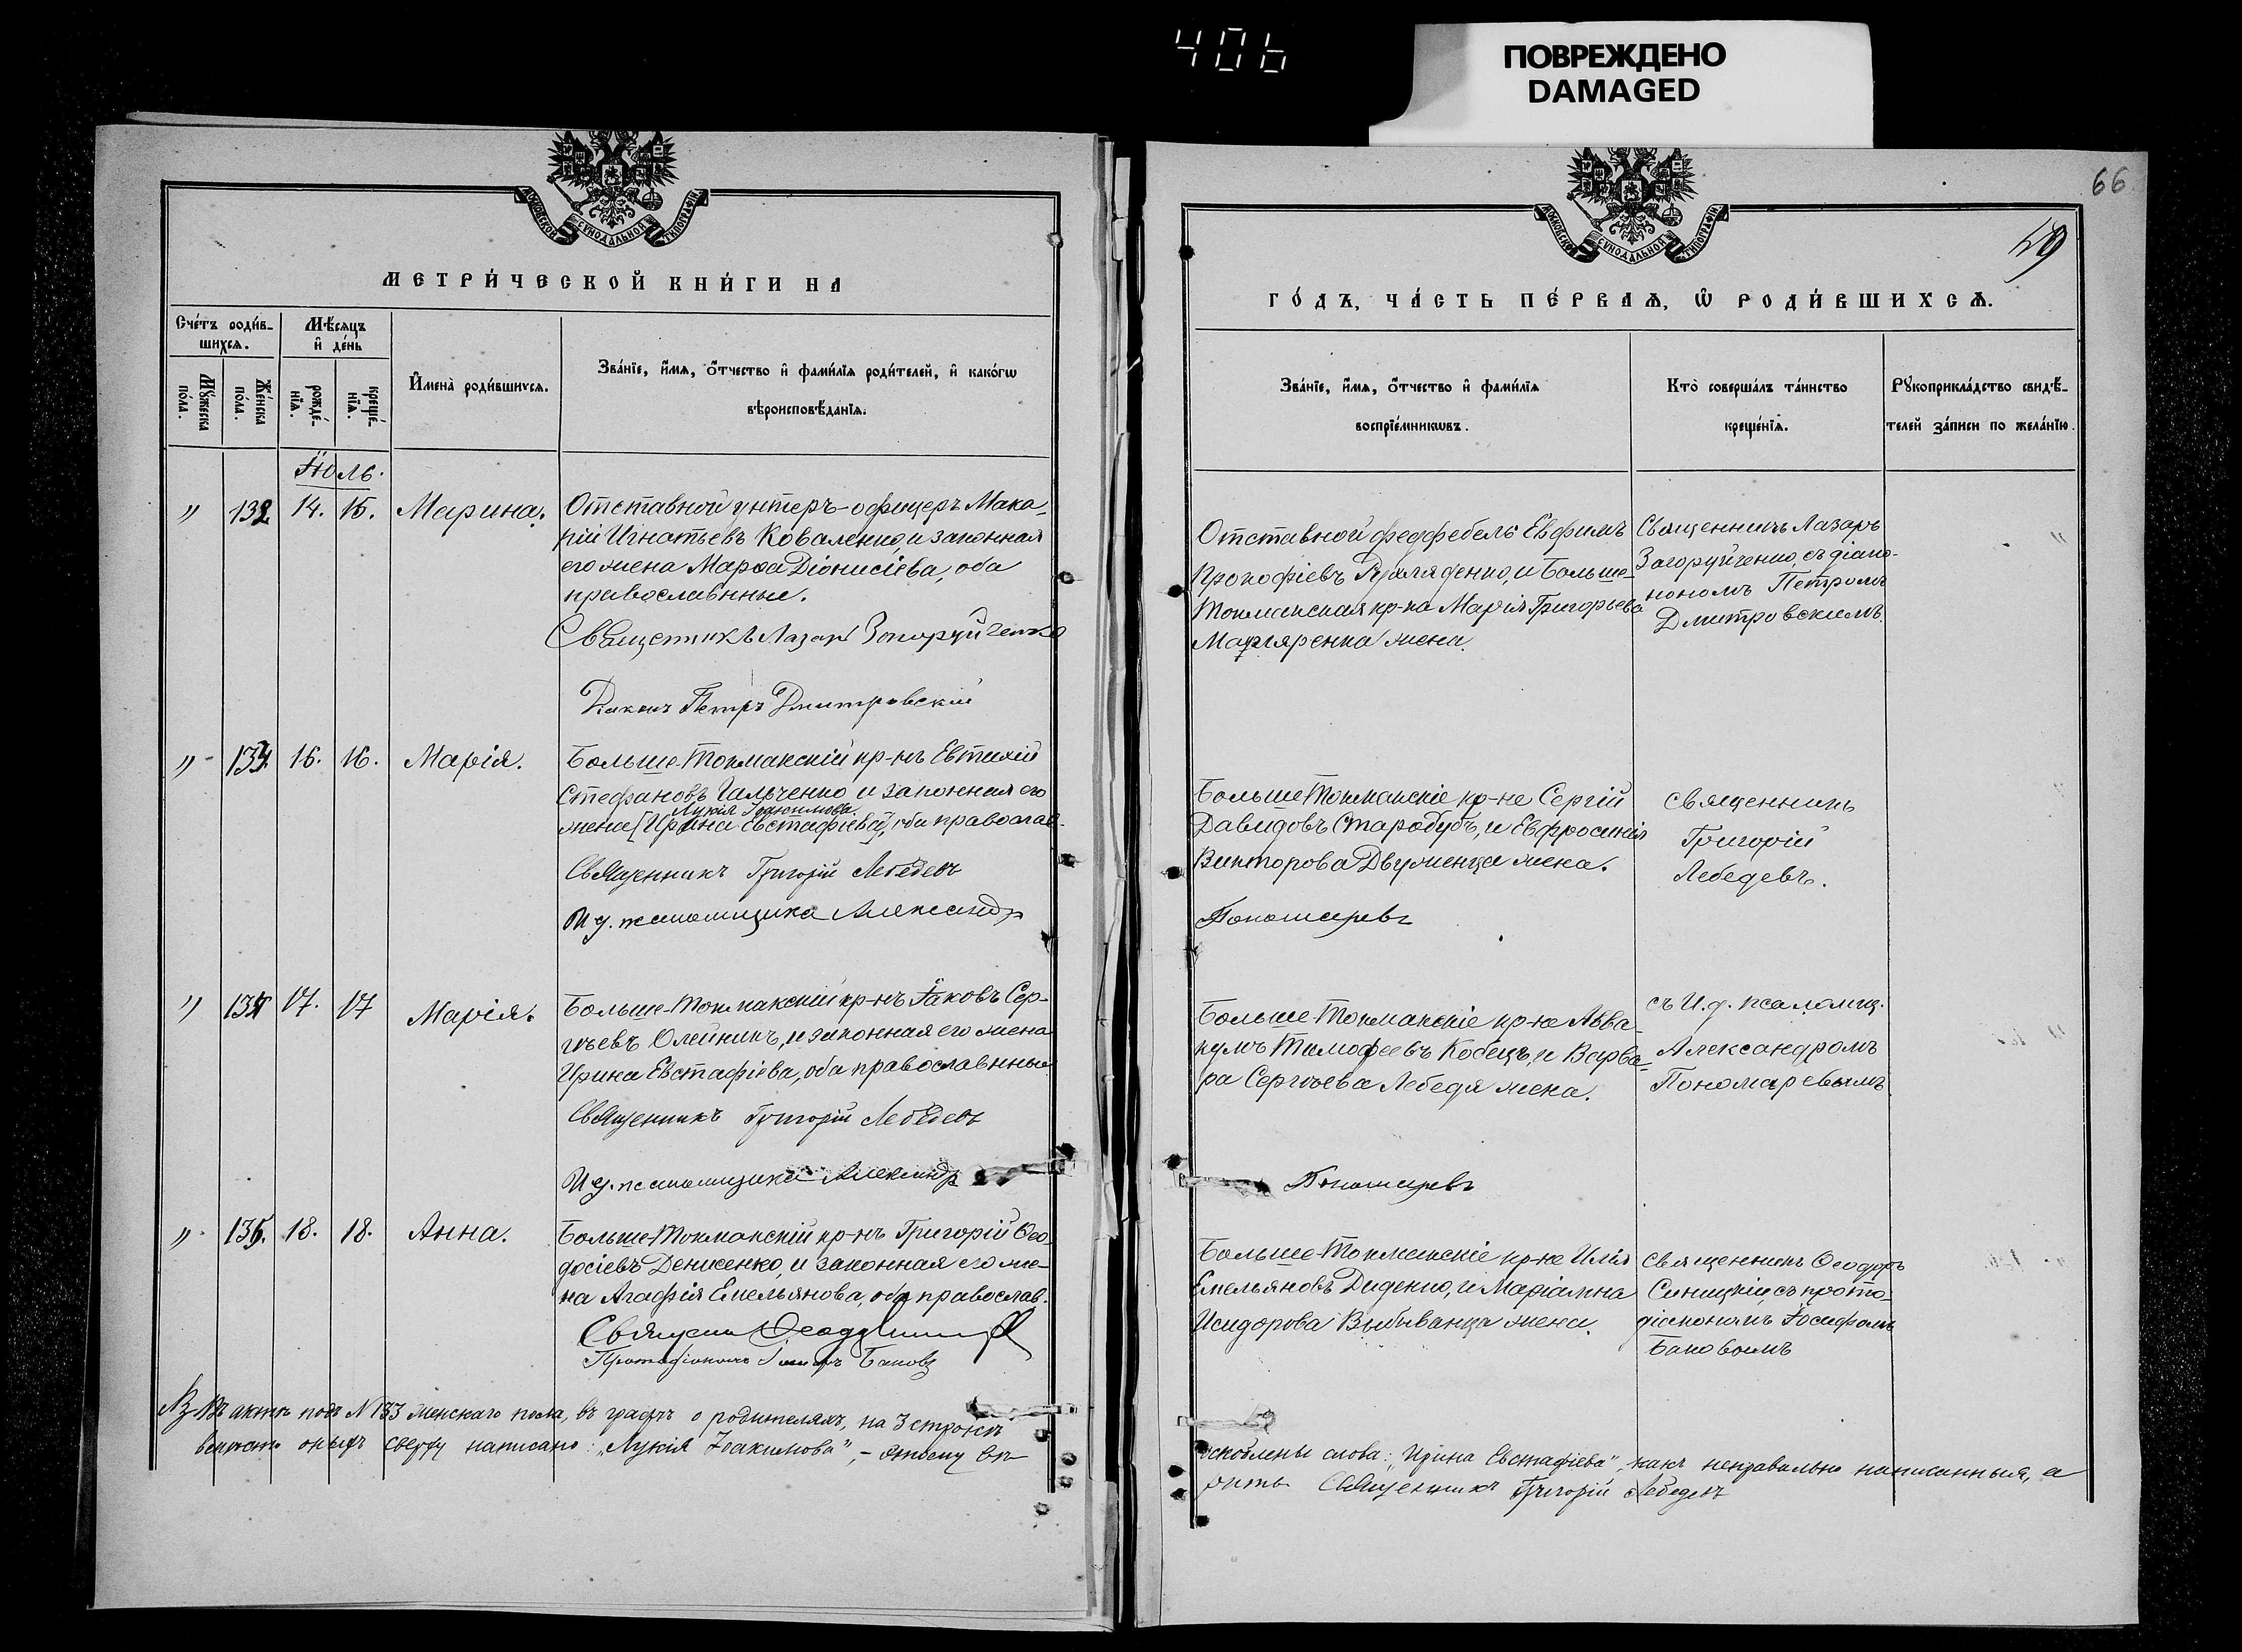 406
ПОВРЕЖДЕНО
DAMAGED
МОСКОВСКОЙ СУНОДАЛЬНОЙ ТИПОГРАФІИ
МЕТРИ́ЧЕСКОЙ КНИ́ГИ НА
Сче́тъ роди́в-
шихсѧ.
Мѣ́сѧцъ
и҆ де́нь
Мꙋ́жеска
по́ла.
Же́нска
по́ла.
рожде́-
нїѧ.
креще́-
нїѧ.
И҆мена̀ роди́вшихсѧ.
Зва́нїе, и҆́мѧ, ѻ҆́тчество и҆ фами́лїѧ роди́телей, и҆ како́гѡ
вѣроисповѣ́данїѧ.
Іюль.
" 132 14. 15. Марина.
Отставной унтеръ-офицеръ Мака-
рій Игнатьевъ Коваленко, и законная
его жена Марѳа Діонисіева, оба
православные.
Священникъ Лазарь Загоруйченко
Діаконъ Петръ Дмитровскій
" 133. 16. 16. Марія.
Больше-Токмакскій кр-нъ Евтихій
Стефановъ Гальченко и законная его
Лукія Іоакимова
жена [Ирина Евстафіева], оба православ.
Священникъ Григорій Лебедевъ
И д. псаломщика Александръ
" 134 17. 17 Марія.
Больше-Токмакскій кр-нъ Іаковъ Сер-
гѣевъ Олейникъ, и законная его жена
Ирина Евстафіева, оба православные
Священникъ Григорій Лебедевъ
И д. псаломщика Александръ
" 135. 18. 18. Анна.
Больше-Токмакскій кр-нъ Григорій Ѳео-
досіевъ Денисенко, и законная его же-
на Агафія Емельянова, оба православ.
Священникъ
Протодіаконъ Баковъ
NB Въ актѣ подъ N 133 женскаго пола, въ графѣ о родителяхъ, на 3 строкѣ
вмѣсто оныхъ сверху написано: "Лукія Іоакимова", - этому вѣ-
66
49
МОСКОВСКОЙ СУНОДАЛЬНОЙ ТИПОГРАФІИ
ГО́ДЪ, ЧА́СТЬ ПЕ́РВАѦ, Ѡ҆ РОДИ́ВШИХСѦ.
Зва́нїе, и҆́мѧ, ѻ҆́тчество и҆ фами́лїѧ
воспрїе́мникѡвъ.
Кто̀ соверша́лъ та́инство
креще́нїѧ.
Рꙋкоприкла́дство свидѣ́-
телей за́писи по жела́нїю.
Отставной фельдфебель Евфимъ
Прокофіевъ и Больше-
Токмакская кр-ка Марія Григорьева
жена.
Священникъ Лазарь
Загоруйченко, съ діако-
нономъ Петромъ
Дмитровскимъ.
Больше Токмакскіе кр-не Сергій
Давидовъ Стародубъ, и Евфросинія
Викторова Двуженца жена.
Пономаревъ
Священникъ
Григорій
Лебедевъ.
Больше-Токмакскіе кр-не Авва-
кумъ Тимофеевъ Кобецъ, и Варва-
ра Сергѣева Лебедя жена.
Пономаревъ
съ И. д. псаломщ.
Александромъ
Пономаревымъ
Больше-Токмакскіе кр-не Илія
Емельяновъ Диденко, и Маріамна
Исидорова Выбыванца жена.
Священникъ Ѳеодоръ
Синицкій, съ прото-
діакономъ Іосифомъ
Баковымъ
оскоблены слова: "Ирина Евстафіева", какъ неправильно написанныя, а
рить Священникъ Григорій Лебедевъ